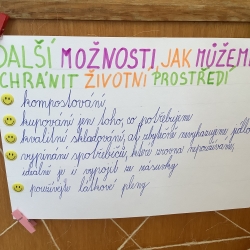 DALŠÍ MOŽNOSTI, JAK MŮŽEME
CHRÁNIT ŽIVOTNÍ PROSTŘEDÍ
kompostování
kupování jen toho, co potřebujeme
kvalitní skladování, ať zbytečně nevyhazujeme jídlo
vypínání spotřebičů, které zrovna nepoužíváme,
ideální je i vypojit ze zásuvky
používejte látkové pleny